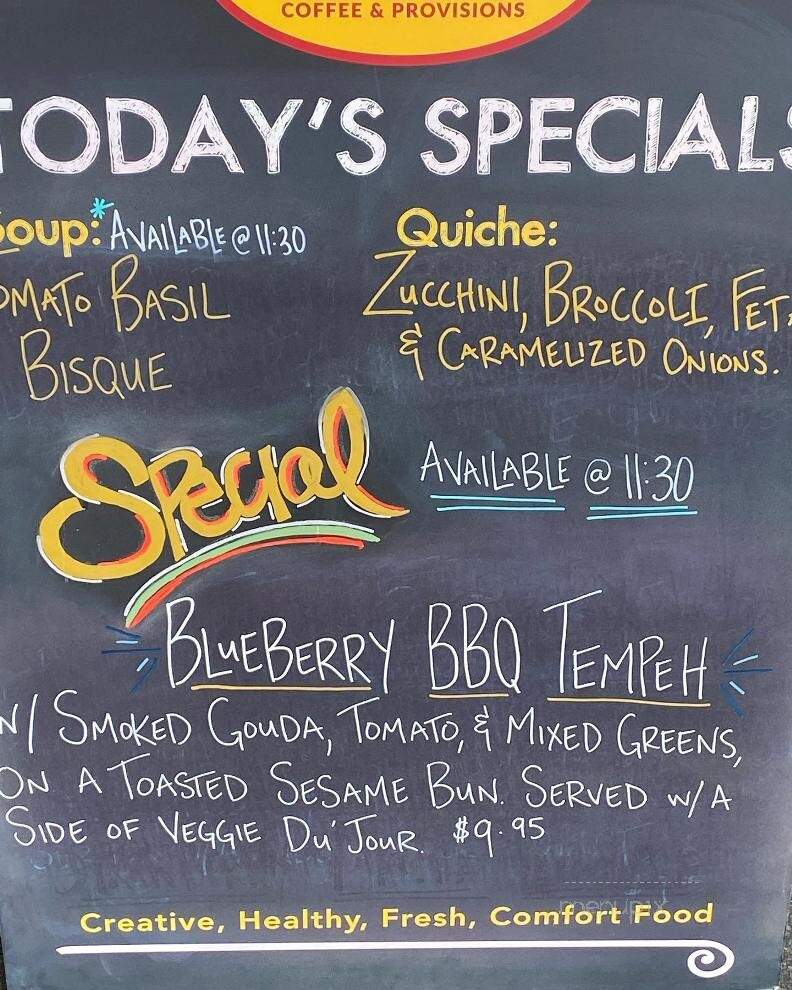 COFFEE & PROVISIONS
TODAY'S SPECIALS
Soup:* AVAILABLE @ 11:30
TOMATO BASIL
BISQUE
Quiche:
ZUCCHINI, BROCCOLI, FETA
& CARAMELIZED ONIONS.
SPECIAL
AVAILABLE @ 11:30
BLUEBERRY BBQ TEMPEH
W/ SMOKED GOUDA, TOMATO, & MIXED GREENS,
ON A TOASTED SESAME BUN. SERVED W/ A
SIDE OF VEGGIE DU'JOUR. $9.95
menupix
Creative, Healthy, Fresh, Comfort Food